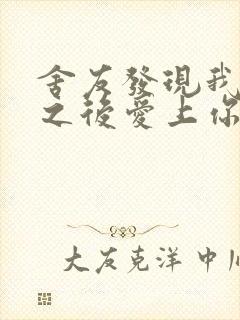 舍友發現我
之後愛上你
大友克洋 中川